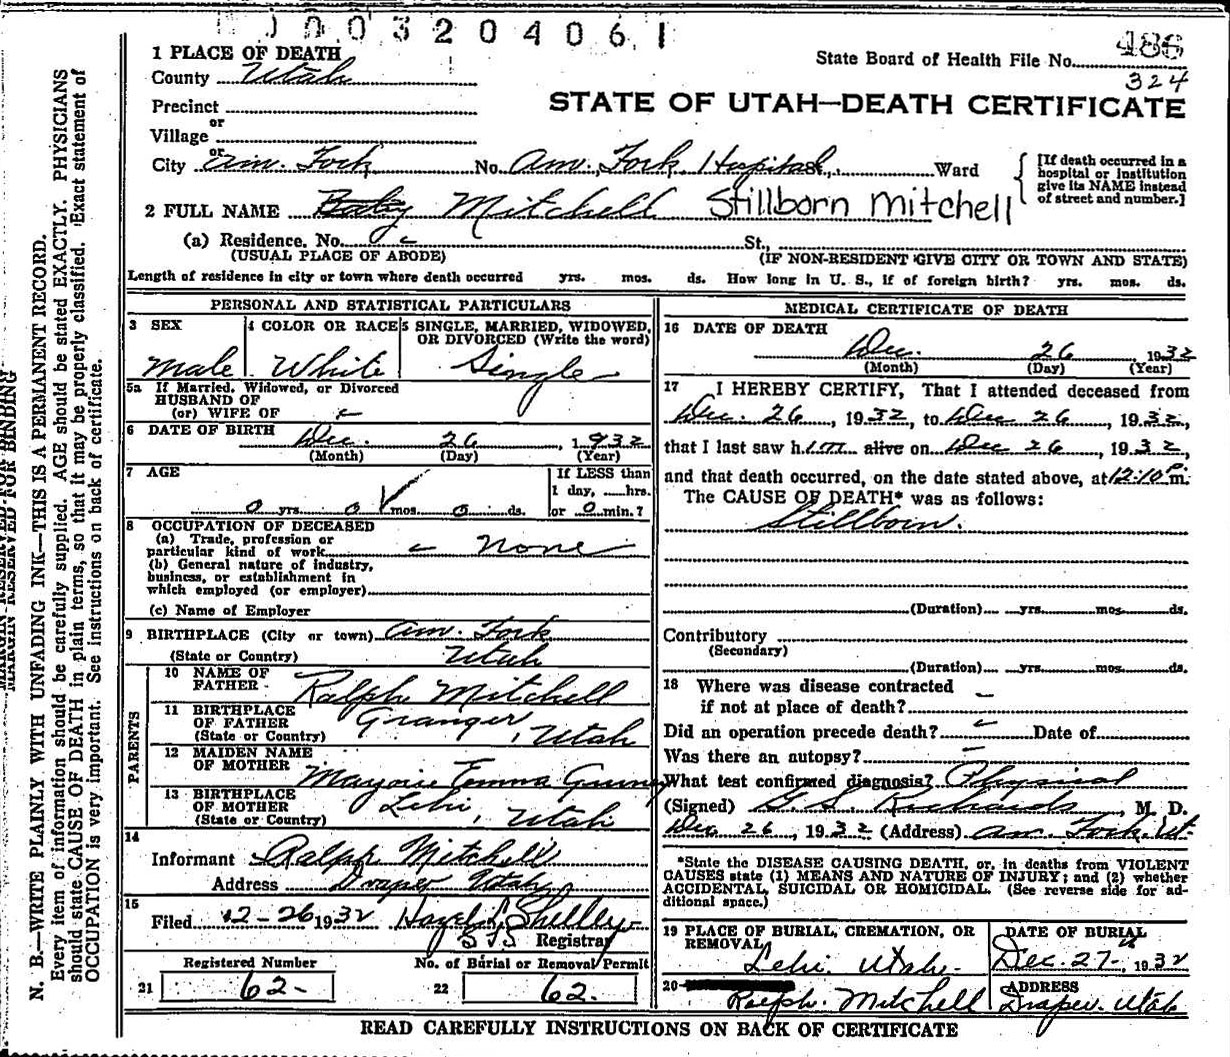 003204061
1 PLACE OF DEATH
County Utah
State Board of Health File No. 486
324
STATE OF UTAH—DEATH CERTIFICATE
Precinct
or
Village
or
City Am. Fork No. Am. Fork Hospital Ward
[If death occurred in a hospital or institution give its NAME instead of street and number.]
2 FULL NAME Baby Mitchell Stillborn Mitchell
(a) Residence. No. St.,
(USUAL PLACE OF ABODE) (IF NON-RESIDENT GIVE CITY OR TOWN AND STATE)
Length of residence in city or town where death occurred yrs. mos. ds. How long in U. S., if of foreign birth? yrs. mos. ds.
PERSONAL AND STATISTICAL PARTICULARS
3 SEX
Male
4 COLOR OR RACE
White
5 SINGLE, MARRIED, WIDOWED, OR DIVORCED (Write the word)
Single
5a If Married, Widowed, or Divorced
HUSBAND OF
(or) WIFE OF
6 DATE OF BIRTH Dec. 26, 1932
(Month) (Day) (Year)
7 AGE
0 yrs. 0 mos. 0 ds.
If LESS than
1 day, ....hrs.
or 0 min.?
8 OCCUPATION OF DECEASED
(a) Trade, profession or
particular kind of work - none
(b) General nature of industry,
business, or establishment in
which employed (or employer)
(c) Name of Employer
9 BIRTHPLACE (City or town) Am. Fork
(State or Country) Utah
PARENTS
10 NAME OF
FATHER Ralph Mitchell
11 BIRTHPLACE
OF FATHER Granger, Utah
(State or Country)
12 MAIDEN NAME
OF MOTHER Marjorie Emma Gurney
13 BIRTHPLACE
OF MOTHER Lehi, Utah
(State or Country)
14
Informant Ralph Mitchell
Address Draper Utah
15
Filed 12-26 1932 Hazel L Shelley
Registrar
Registered Number
21 62-
No. of Burial or Removal Permit
22 62.
MEDICAL CERTIFICATE OF DEATH
16 DATE OF DEATH
Dec. 26 1932
(Month) (Day) (Year)
17 I HEREBY CERTIFY, That I attended deceased from
Dec. 26, 1932, to Dec 26, 1932,
that I last saw him alive on Dec 26, 1932,
and that death occurred, on the date stated above, at 12:10 P. m.
The CAUSE OF DEATH* was as follows:
Stillborn.
(Duration) yrs. mos. ds.
Contributory
(Secondary)
(Duration) yrs. mos. ds.
18 Where was disease contracted
if not at place of death? -
Did an operation precede death? - Date of
Was there an autopsy? -
What test confirmed diagnosis? Physical
(Signed) Richards, M. D.
Dec 26, 1932 (Address) Am. Fork, Ut.
*State the DISEASE CAUSING DEATH, or, in deaths from VIOLENT
CAUSES state (1) MEANS AND NATURE OF INJURY; and (2) whether
ACCIDENTAL, SUICIDAL OR HOMICIDAL. (See reverse side for ad-
ditional space.)
19 PLACE OF BURIAL, CREMATION, OR
REMOVAL
Lehi. Utah.
DATE OF BURIAL
Dec. 27, 1932
20
Ralph. Mitchell
ADDRESS
Draper. Utah
READ CAREFULLY INSTRUCTIONS ON BACK OF CERTIFICATE
MARGIN RESERVED FOR BINDING
N. B.—WRITE PLAINLY WITH UNFADING INK—THIS IS A PERMANENT RECORD.
Every item of information should be carefully supplied. AGE should be stated EXACTLY. PHYSICIANS
should state CAUSE OF DEATH in plain terms, so that it may be properly classified. Exact statement of
OCCUPATION is very important. See instructions on back of certificate.